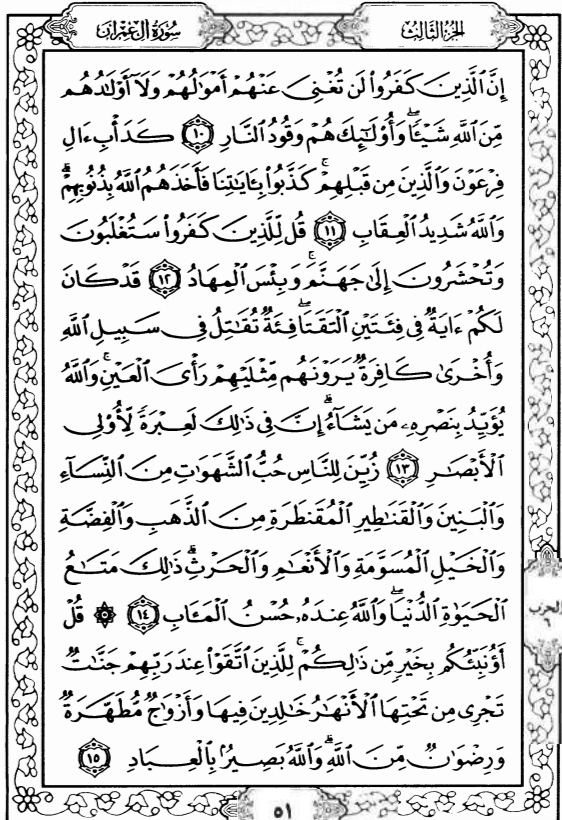 سُورَةُ آلِ عِمْرَان
الجُزْءُ الثَّالِثُ
إِنَّ ٱلَّذِينَ كَفَرُوا۟ لَن تُغْنِىَ عَنْهُمْ أَمْوَٰلُهُمْ وَلَآ أَوْلَٰدُهُم
مِّنَ ٱللَّهِ شَيْـًٔا ۖ وَأُو۟لَٰٓئِكَ هُمْ وَقُودُ ٱلنَّارِ ١٠ كَدَأْبِ ءَالِ
فِرْعَوْنَ وَٱلَّذِينَ مِن قَبْلِهِمْ ۚ كَذَّبُوا۟ بِـَٔايَٰتِنَا فَأَخَذَهُمُ ٱللَّهُ بِذُنُوبِهِمْ ۗ
وَٱللَّهُ شَدِيدُ ٱلْعِقَابِ ١١ قُل لِّلَّذِينَ كَفَرُوا۟ سَتُغْلَبُونَ
وَتُحْشَرُونَ إِلَىٰ جَهَنَّمَ ۚ وَبِئْسَ ٱلْمِهَادُ ١٢ قَدْ كَانَ
لَكُمْ ءَايَةٌ فِى فِئَتَيْنِ ٱلْتَقَتَا ۖ فِئَةٌ تُقَٰتِلُ فِى سَبِيلِ ٱللَّهِ
وَأُخْرَىٰ كَافِرَةٌ يَرَوْنَهُم مِّثْلَيْهِمْ رَأْىَ ٱلْعَيْنِ ۚ وَٱللَّهُ
يُؤَيِّدُ بِنَصْرِهِۦ مَن يَشَآءُ ۗ إِنَّ فِى ذَٰلِكَ لَعِبْرَةً لِّأُو۟لِى
ٱلْأَبْصَٰرِ ١٣ زُيِّنَ لِلنَّاسِ حُبُّ ٱلشَّهَوَٰتِ مِنَ ٱلنِّسَآءِ
وَٱلْبَنِينَ وَٱلْقَنَٰطِيرِ ٱلْمُقَنطَرَةِ مِنَ ٱلذَّهَبِ وَٱلْفِضَّةِ
وَٱلْخَيْلِ ٱلْمُسَوَّمَةِ وَٱلْأَنْعَٰمِ وَٱلْحَرْثِ ۗ ذَٰلِكَ مَتَٰعُ
ٱلْحَيَوٰةِ ٱلدُّنْيَا ۖ وَٱللَّهُ عِندَهُۥ حُسْنُ ٱلْمَـَٔابِ ١٤ ۞ قُلْ
أَؤُنَبِّئُكُم بِخَيْرٍ مِّن ذَٰلِكُمْ ۚ لِلَّذِينَ ٱتَّقَوْا۟ عِندَ رَبِّهِمْ جَنَّٰتٌ
تَجْرِى مِن تَحْتِهَا ٱلْأَنْهَٰرُ خَٰلِدِينَ فِيهَا وَأَزْوَٰجٌ مُّطَهَّرَةٌ
وَرِضْوَٰنٌ مِّنَ ٱللَّهِ ۗ وَٱللَّهُ بَصِيرٌۢ بِٱلْعِبَادِ ١٥
الحزب
٦
٥١